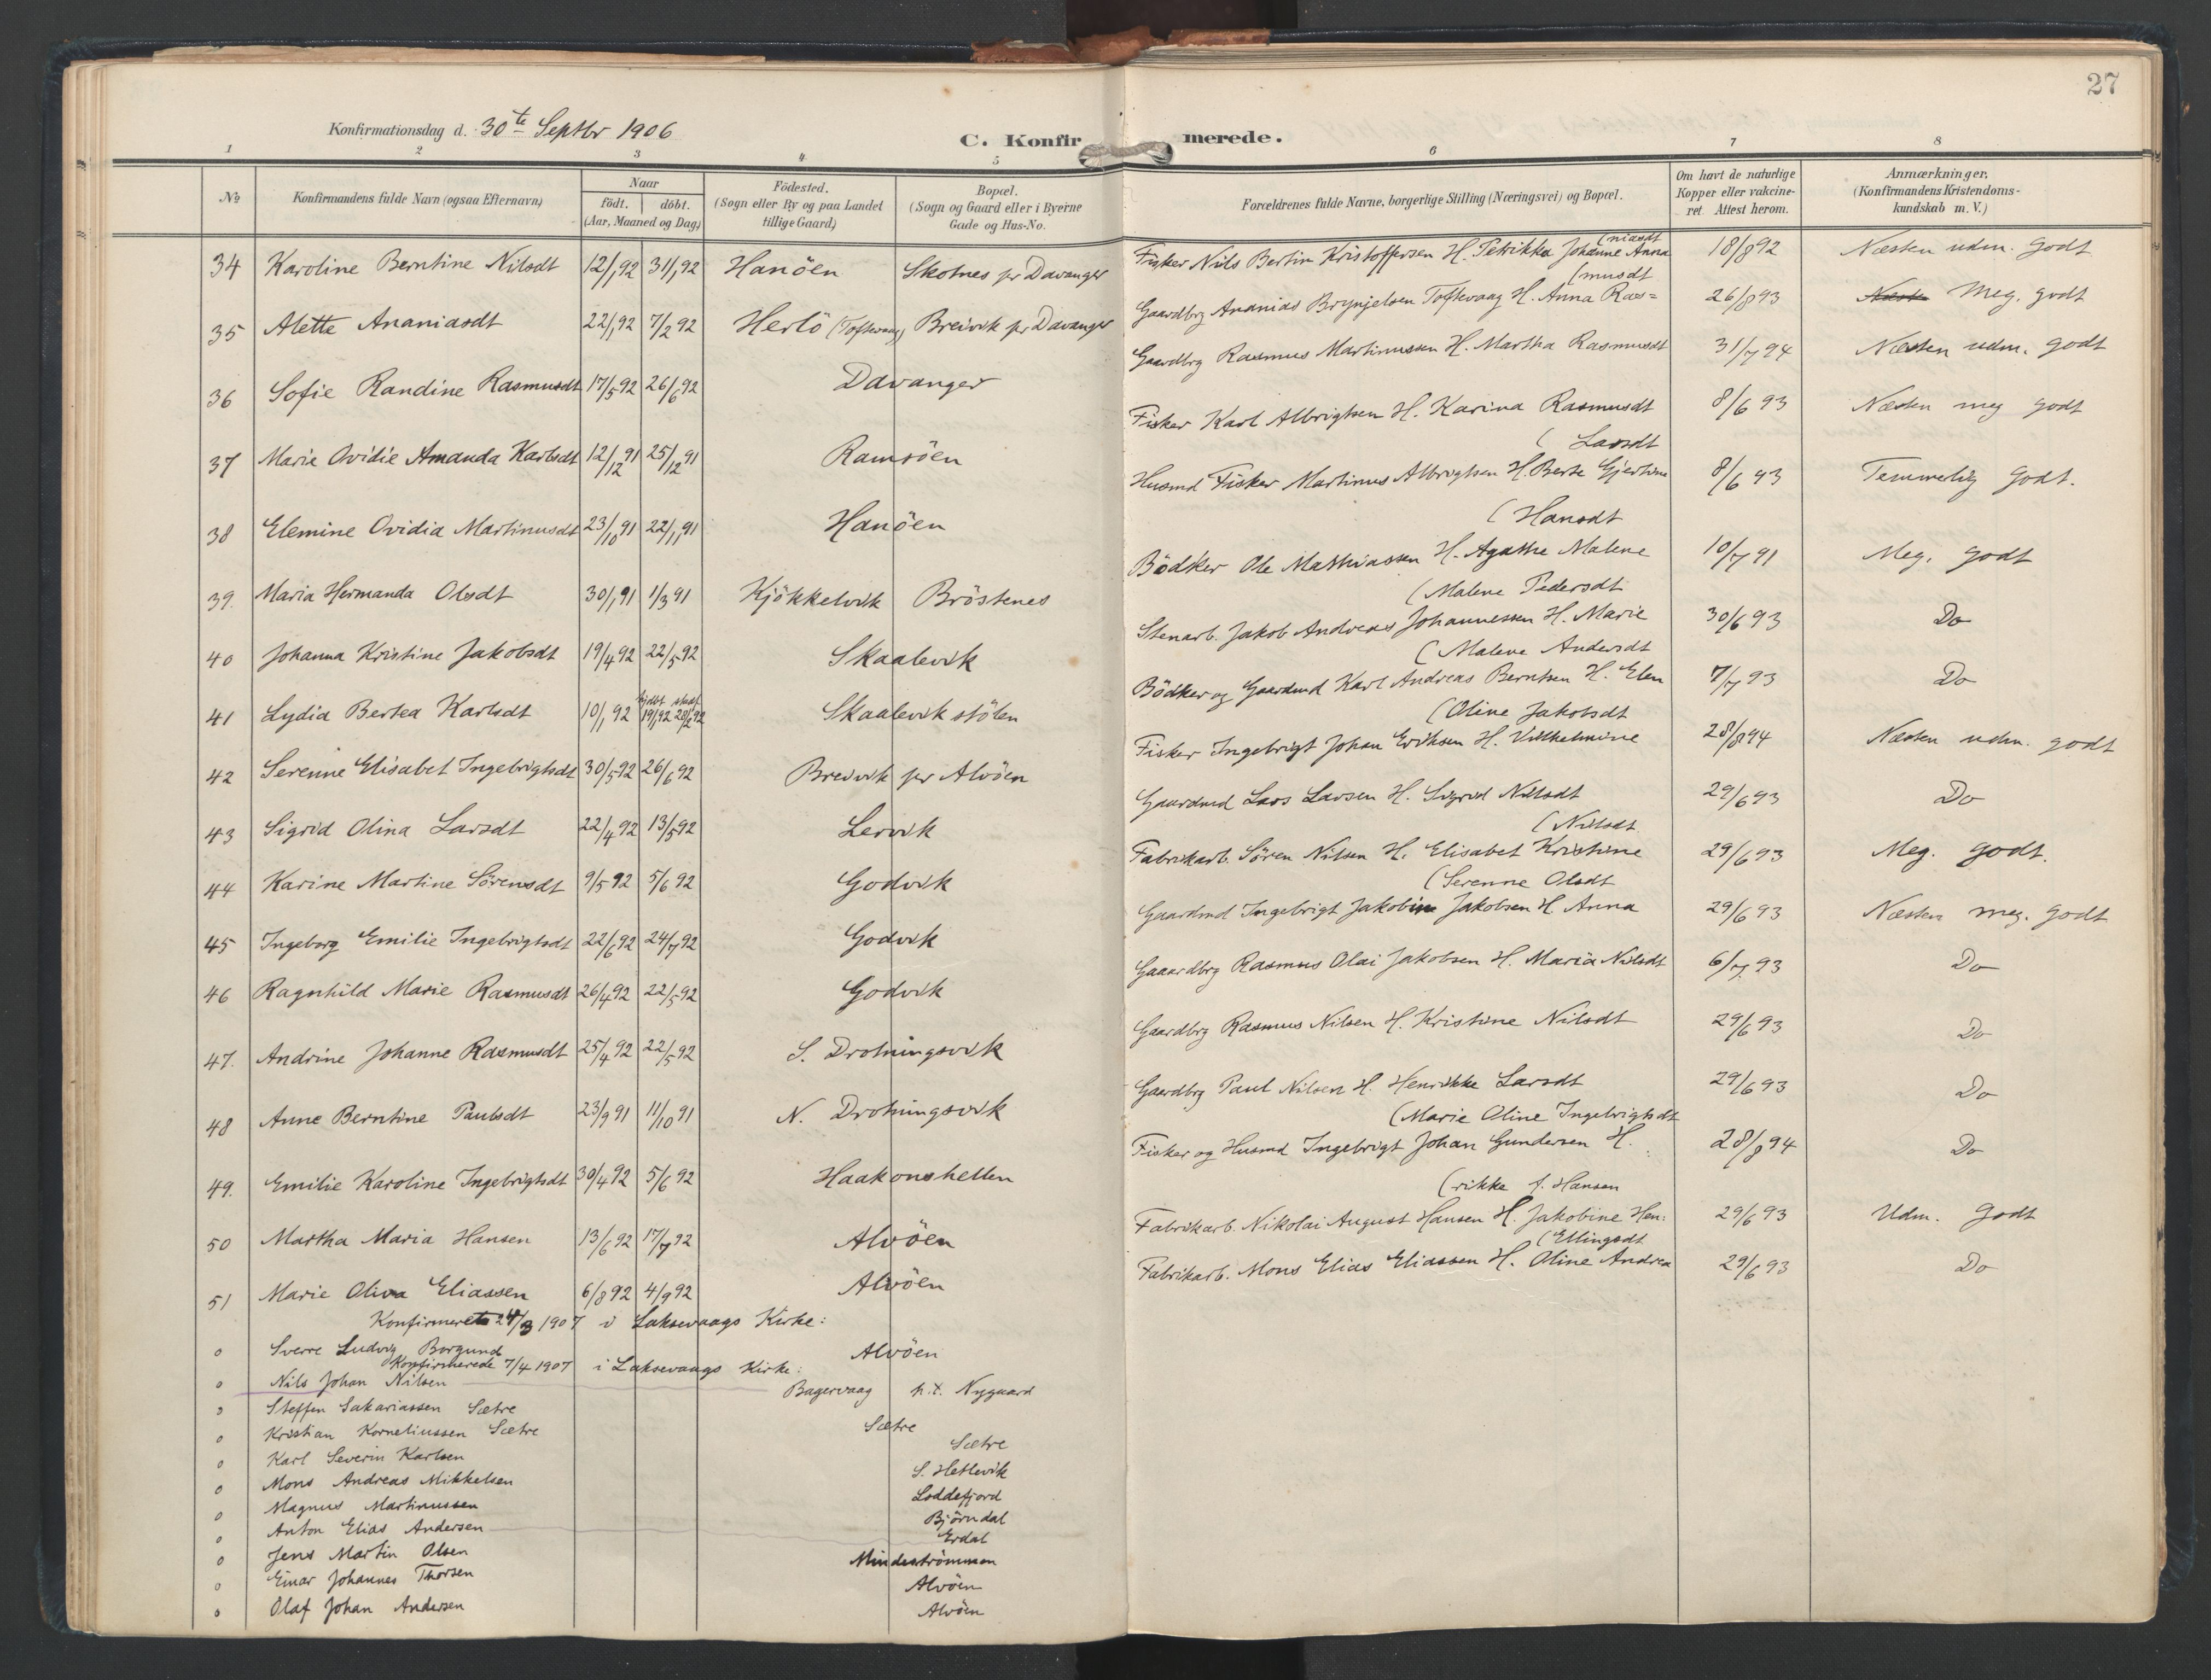 27
Konfirmationsdag d. 30te Septbr 1906
C. Konfirmerede.
1 2 3 4 5 6 7 8
No
Konfirmandens fulde Navn (ogsaa Efternavn)
Naar
födt. döbt.
(Aar, Maaned og Dag)
Födested.
(Sogn eller By og paa Landet
tillige Gaard)
Bopæl.
(Sogn og Gaard eller i Byerne
Gade og Hus-No.
Forældrenes fulde Navne, borgerlige Stilling (Næringsvei) og Bopæl.
Om havt de naturlige
Kopper eller vakcine-
ret. Attest herom.
Anmærkninger.
(Konfirmandens Kristendoms-
kundskab m. V.)
34 Karoline Berntine Nilsdt 12/1 92 31/1 92 Hanöen Skotnes pr Davanger Fisker Nils Bertin Kristoffersen H. Petrikka Johanne Anna (niasdt 18/8 92 Næsten udm. godt
35 Alette Ananiasdt 22/1 92 7/2 92 Herlö (Toftevaag) Breivik pr Davanger Gaardbrg Ananias Brynjelsen Toftevaag H. Anna Ras= (musdt 26/8 93 Meg. godt
36 Sofie Randine Rasmusdt 17/5 92 26/6 92 Davanger Gaardbrg Rasmus Martinussen H. Martha Rasmusdt 31/7 94 Næsten udm. godt
37 Marie Ovidie Amanda Karlsdt 12/12 91 25/12 91 Ramsöen Fisker Karl Albrigtsen H. Karina Rasmusdt 8/6 93 Næsten meg godt
38 Elemine Ovidia Martinusdt 23/10 91 22/11 91 Hanöen Husmd Fisker Martinus Albrigtsen H. Berte Gjertine (Larsdt 8/6 93 Temmelig godt.
39. Maria Hermanda Olsdt 30/1 91 1/3 91 Kjökkelvik Bröstenes Bödker Ole Mathiassen H. Agathe Malene (Hansdt 10/7 91 Meg. godt
40 Johanna Kristine Jakobsdt 19/4 92 22/5 92 Skaalevik Stenarb. Jakob Andreas Johannessen H. Marie (Malene Pedersdt 30/6 93 Do
41 Lydia Bertea Karlsdt 10/1 92 hjdbt 19/1 92 stadf 28/2 92 Skaalevikstölen Bödker og Gaardmd Karl Andreas Berntsen H. Elen (Malene Andersdt 7/7 93 Do
42 Serenne Elisabet Ingebrigtsdt 30/5 92 26/6 92 Breivik pr Alvöen Fisker Ingebrigt Johan Eriksen H. Vilhelmine (Oline Jakobsdt 28/8 94 Næsten udm. godt
43 Sigrid Olina Larsdt 22/4 92 13/5 92 Lervik Gaardmd Lars Larsen H. Sigrid Nilsdt 29/6 93 Do
44 Karine Martine Sörensdt 9/5 92 5/6 92 Godvik Fabrikarb. Sören Nilsen H. Elisabet Kristine (Nilsdt 29/6 93 Meg. godt.
45 Ingeborg Emilie Ingebrigtsdt 22/6 92 24/7 92 Godvik Gaardmd Ingebrigt Jakobine Jakobsen H. Anna (Serenne Olsdt 29/6 93 Næsten meg. godt
46 Ragnhild Marie Rasmusdt 26/4 92 22/5 92 Godvik Gaaardbrg Rasmus Olai Jakobsen H. Maria Nilsdt 6/7 93 Do
47. Andrine Johanne Rasmusdt 25/4 92 22/5 92 S. Drotningsvik Gaardbrg Rasmus Nilsen H. Kristine Nilsdt 29/6 93 Do
48 Anne Berntine Paulsdt 23/9 91 11/10 91 N. Drotningsvik Gaardbrg Paul Nilsen H. Henrikke Larsdt 29/6 93 Do
49. Emilie Karoline Ingebrigtsdt 30/4 92 5/6 92 Haakonshellen Fisker og Husmd Ingebrigt Johan Gundersen H. (Marie Oline Ingebrigtsdt 28/8 94 Do
50 Martha Maria Hansen 13/6 92 17/7 92 Alvöen Fabrikarb. Nikolai August Hansen H. Jakobine Hen: (rikke f. Hansen 29/6 93 Udm. godt
51 Marie Oliva Eliassen 6/8 92 4/9 92 Alvöen Fabrikarb. Mons Elias Eliassen H. Oline Andrea (Ellingsdt 29/6 93 Do
Konfirmerede 24/3 1907 i Laksevaags Kirke:
o Sverre Ludvig Borgund Alvöen
Konfirmerede 7/4 1907 i Laksevaags Kirke:
o Nils Johan Nilsen Bagervaag p.t. Nygaard
o Steffen Sakariassen Sætre Sætre
o Kristian Korneliussen Sætre Sætre
o Karl Severin Karlsen S. Hetlevik
o Mons Andreas Mikkelsen Loddefjord
o Magnus Martinussen Björndal
o Anton Elias Andersen Erdal
o Jens Martin Olsen Mindeströmmen
o Einar Johannes Thorsen Alvöen
o Olaf Johan Andersen Alvöen